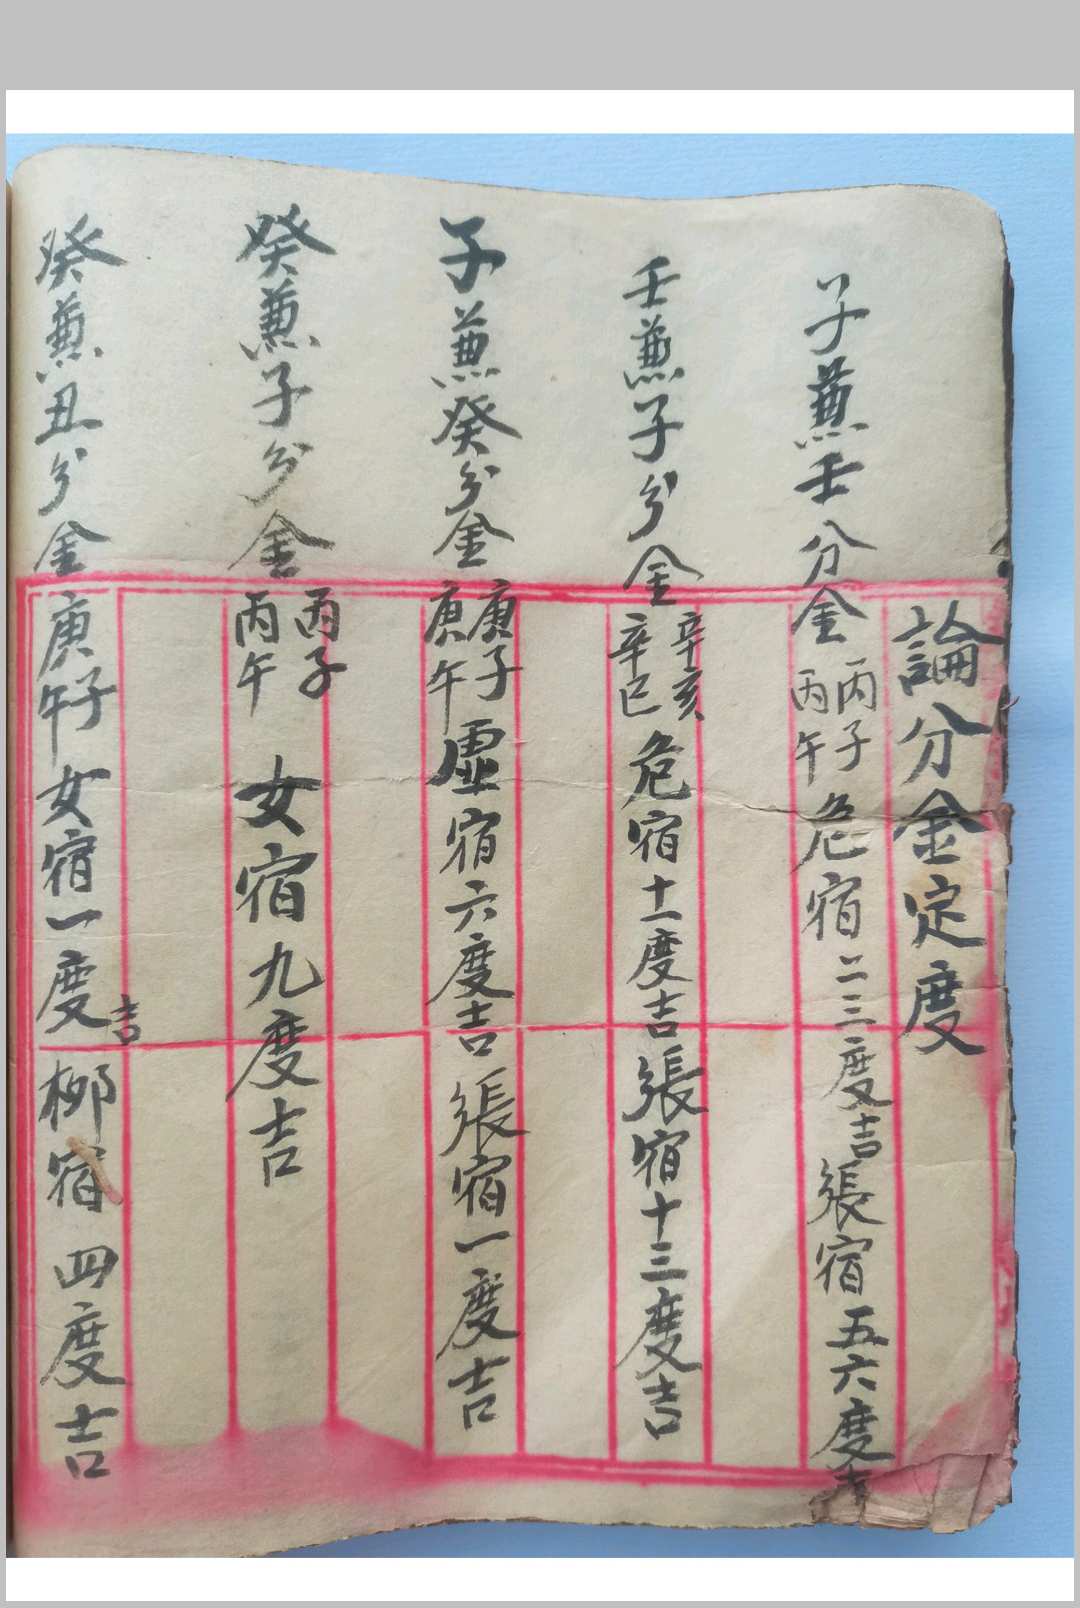 論分金定度
子兼壬分金丙子丙午危宿二三度吉張宿五六度吉
壬兼子分金辛亥辛巳危宿十一度吉張宿十三度吉
子兼癸分金庚子庚午虛宿六度吉張宿一度吉
癸兼子分金丙子丙午女宿九度吉
癸兼丑分金庚子午女宿一度吉柳宿四度吉